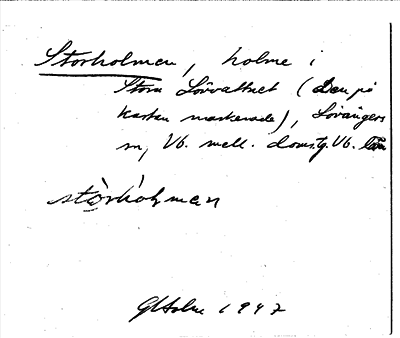 Storholmen, holme i
Stora Lövvattnet (Den på
kartan markerade), Lövångers
sn, Vb. mell. doms.g. Vb. län
stòrhòlman
GHolm 1947